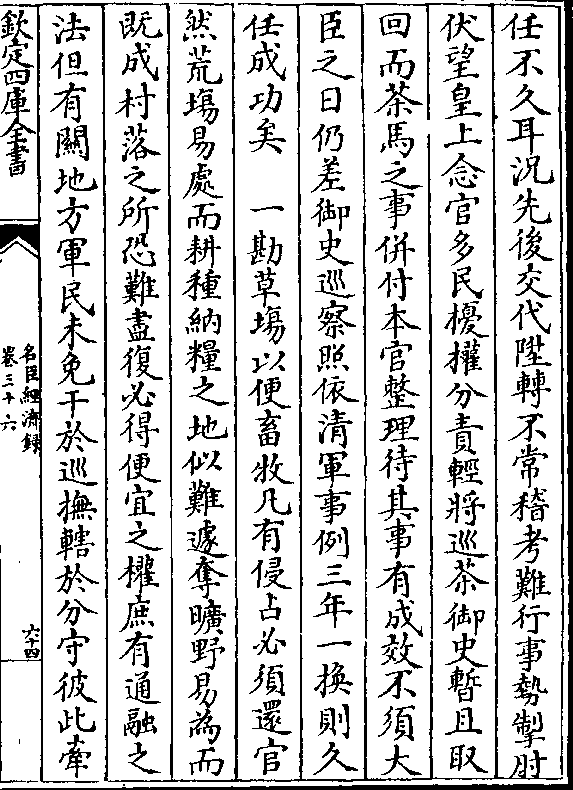 任不久耳況先後交代陞轉不常稽考難行事勢掣肘
伏望皇上念官多民擾權分責輕將巡茶御史暫且取
回而茶馬之事併付本官整理待其事有成效不須大
臣之日仍差御史巡察照依清軍事例三年一換則久
任成功矣　一勘草塲以便畜牧凡有侵占必須還官
然荒塲易處而耕種納糧之地似難遽奪曠野易為而
既成村落之所恐難盡復必得便宜之權庶有通融之
法但有關地方軍民未免干於巡撫轄於分守彼此牽
欽定四庫全書
名臣經濟録
卷三十六
六十四